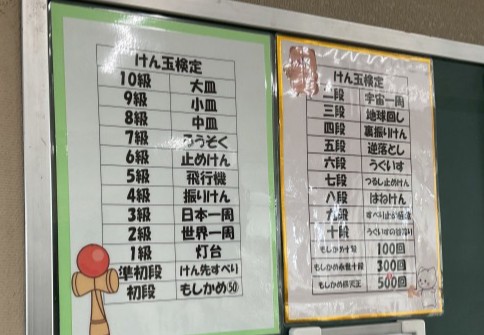 けん玉検定
10級 大皿
9級 小皿
8級 中皿
7級 ろうそく
6級 止めけん
5級 飛行機
4級 振りけん
3級 日本一周
2級 世界一周
1級 灯台
準初段 けん先すべり
初段 もしかめ(50)
けん玉検定
二段 宇宙一周
三段 地球回し
四段 裏振りけん
五段 逆落とし
六段 うぐいす
七段 つるし止めけん
八段 はねけん
九段
十段
100回
300回
500回